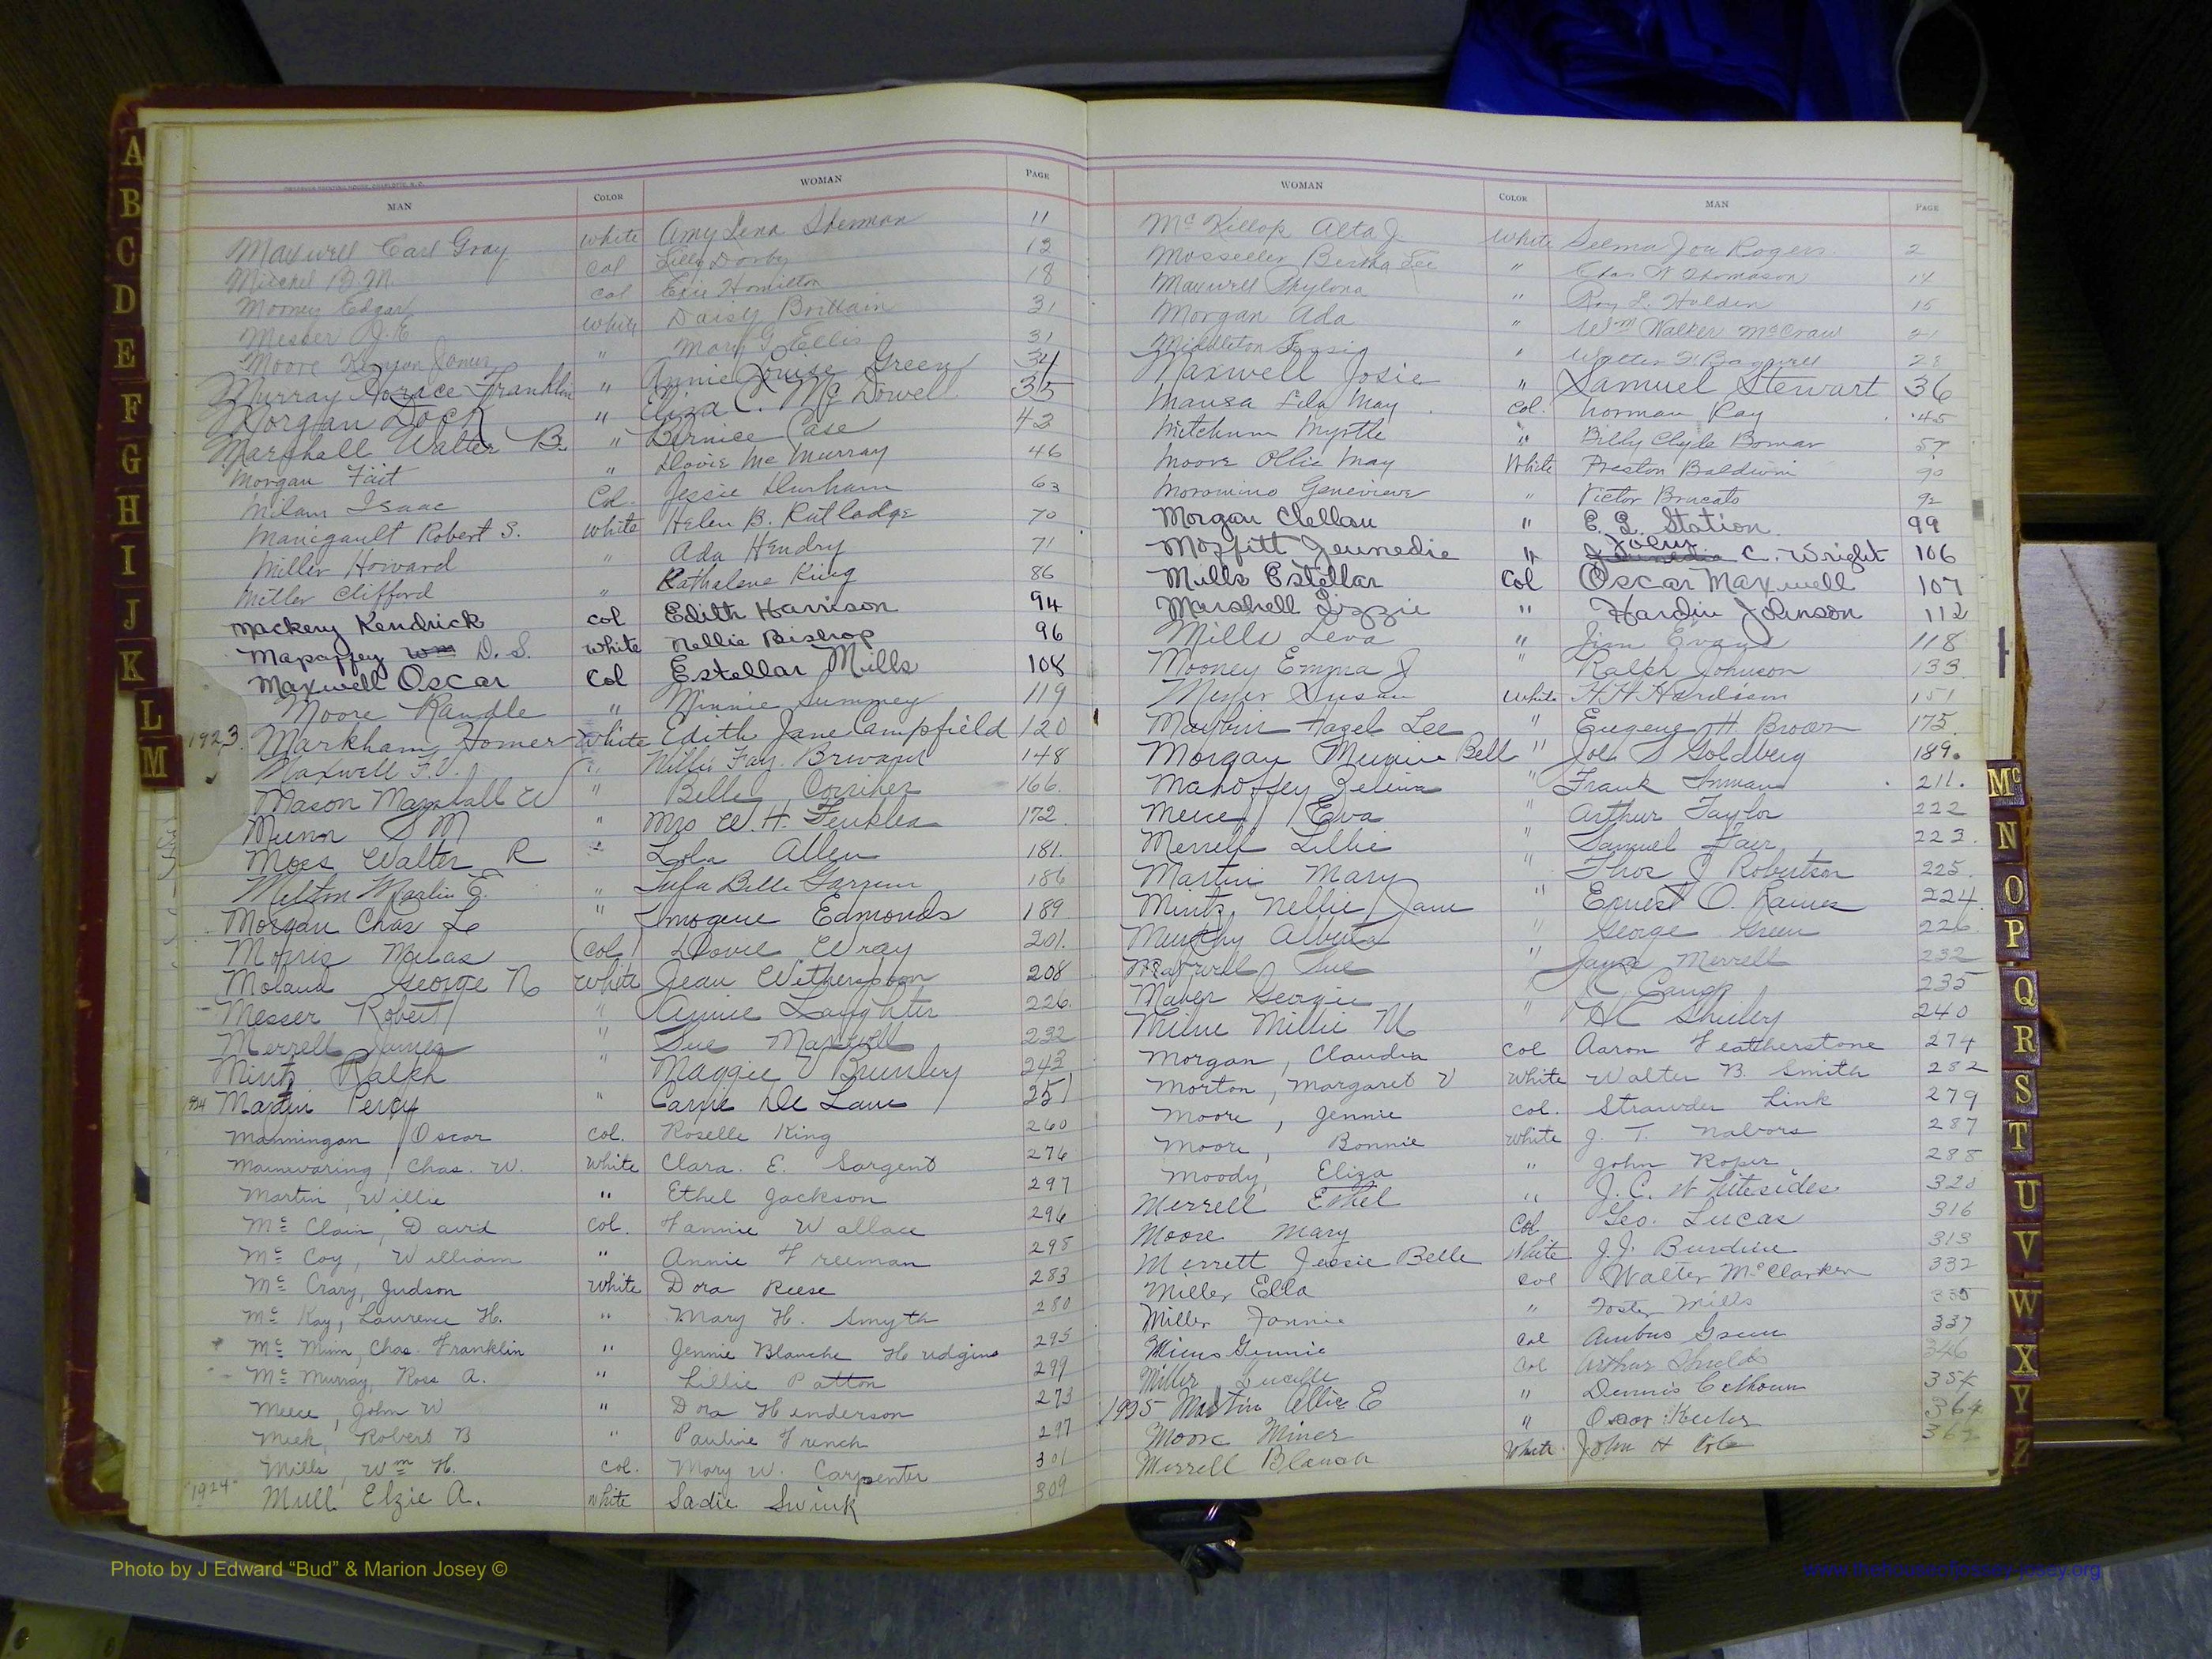 MAN COLOR WOMAN PAGE
Maxwell Carl Gray white Amy Lena Sherman 11
Michel B.M. Col Lilly Dorby 12
Mooney Edgar col Exie Hamilton 18
Messer J.E. white Daisy Brittain 31
Moore Kenyon " Mary G. Ellis 31
Murray Horace Franklin " Annie Louise Green 34
Morgan Dock " Eliza C. McDowell 35
Marshall Walter B. " Bernice Case 42
Morgan Fait " Dovie McMurray 46
Milam Isaac Col. Jessie Durham 63
Manigault Robert S. white Helen B. Rutledge 70
Miller Howard " Ada Hendry 71
Miller Clifford " Kathalene King 86
Mackery Kendrick col Edith Harrison 94
Mapaffey Wm D.S. white Nellie Bishop 96
Maxwell Oscar Col Estellar Mills 108
Moore Randle " Minnie Summey 119
1923. Markham Homer White Edith Jane Campfield 120
Maxwell F.V. " Fay 148
Mason Marshall W " Belle 166.
Munn S M " Mrs W.H. 172
Moss Walter R " Lola Allen 181.
Milton E. " Lula Belle 186
Morgan Chas L " Imogene Edmonds 189
Morris Col Dovie Wray 201.
George N white Jean Witherspoon 208
Messer Robert " Annie Laughter 226.
Merrell James " Sue Maxwell 232
Mintz Ralph " Maggie V 243
1924 Martin Percy " Carrie De Lane 251
Manningan Oscar col. Roselle King 260
Mainwaring, Chas. W. White Clara. E. Sargent 276
Martin, Willie " Ethel Jackson 297
Mc Clain, David col. Fannie Wallace 296
Mc Coy, William " Annie Freeman 295
Mc Crary, Judson White Dora Reese 283
Mc Kay, Laurence H. " Mary H. Smyth 280
Mc Minn, Chas. Franklin " Jennie Blanche Hudgins 295
Mc Murray, Ross A. " Lillie Patton 299
Meece, John W " Dora Henderson 273
Meek, Robert B " Pauline French 297
Mills, Wm H. col. Mary W. Carpenter 301
"1924" Mull Elzie A. white Sadie Swink 309
WOMAN COLOR MAN PAGE
McKillop Alta J. White Selma Joe Rogers 2
Mosseller Bertha Lee " Chas W Thomason 14
Maxwell " Roy L. Holden 15
Morgan Ada " Wm Walker McCraw 21
Middleton " Walter Bagwell 28
Maxwell Josie " Samuel Stewart 36
Mansa Lila May Col. Norman Ray 45
Mitchum Myrtle " Billy Clyde Bomar 57
Moore Ollie May White Preston Baldwin 90
Moromino Genevieve " Victor Brucato 92
Morgan Clellan " E. Q. Station 99
Moffitt Jeunedie " John C. Wright 106
Mills Estellar Col Oscar Maxwell 107
Marshall Lizzie " Hardin Johnson 112
Mills Leva " Jim Evans 118
Mooney Emma J " Ralph Johnson 133
Messer Susan White H H Hardison 151
Maybin Hazel Lee " Eugene H. Brown 175
Morgan Minnie Bell " Joe S Goldberg 189.
Mahoffey Zelina " Frank Inman 211.
Meece Eva " Arthur Taylor 222
Merrell Lillie " Samuel Fair 223.
Martin Mary " Thos J Robertson 225.
Mintz, Nellie Jane " Ernest O. Raines 224
Murphy Alberta " George Green 226
Maxwell Sue " James Merrell 232
Maber Georgie " Camp 235
Milne Millie M " H C Shirley 240
Morgan, Claudia Col Aaron Featherstone 274
Morton, Margaret V White Walter B. Smith 282
Moore, Jennie col. Strawder Link 279
Moore, Bonnie White J. T. Nabors 287
Moody, Eliza " John Roper 288
Merrell Ethel " J. C. Whitesides 320
Moore Mary Col Geo. Lucas 316
Merrett Jessie Belle White J.J. Burdine 313
Miller Ella Col Walter McClarken 332
Miller Fannie " Foster Mills 335
Mims Gennie Col Ambus Green 337
Miller Lucille Col Arthur Shields 346
1925 Martin Allie E " Dennis Calhoun 354
Moore Miner " Oscar 364
Merrell Blanch White John H Cole 362
A
B
C
D
E
F
G
H
I
J
K
L
M
Mc
N
O
P
Q
R
S
T
U
V
W
X
Y
Z
Photo by J Edward “Bud” & Marion Josey ©